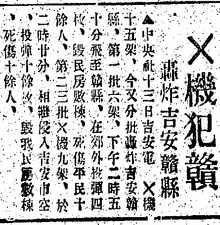 ×機犯贛
轟炸吉安贛縣
▲中央社十三日吉安電　×機
十五架、今又分批轟炸吉安贛
縣、第一批六架、下午二時五
十分飛至贛縣、在郊外投彈四
枚、毀民房數棟、死傷平民十
餘人、第二三批×機九架、於
二時廿分、相繼侵入吉安市空
、投彈十餘枚、毀我民房數棟
、死傷十餘人、